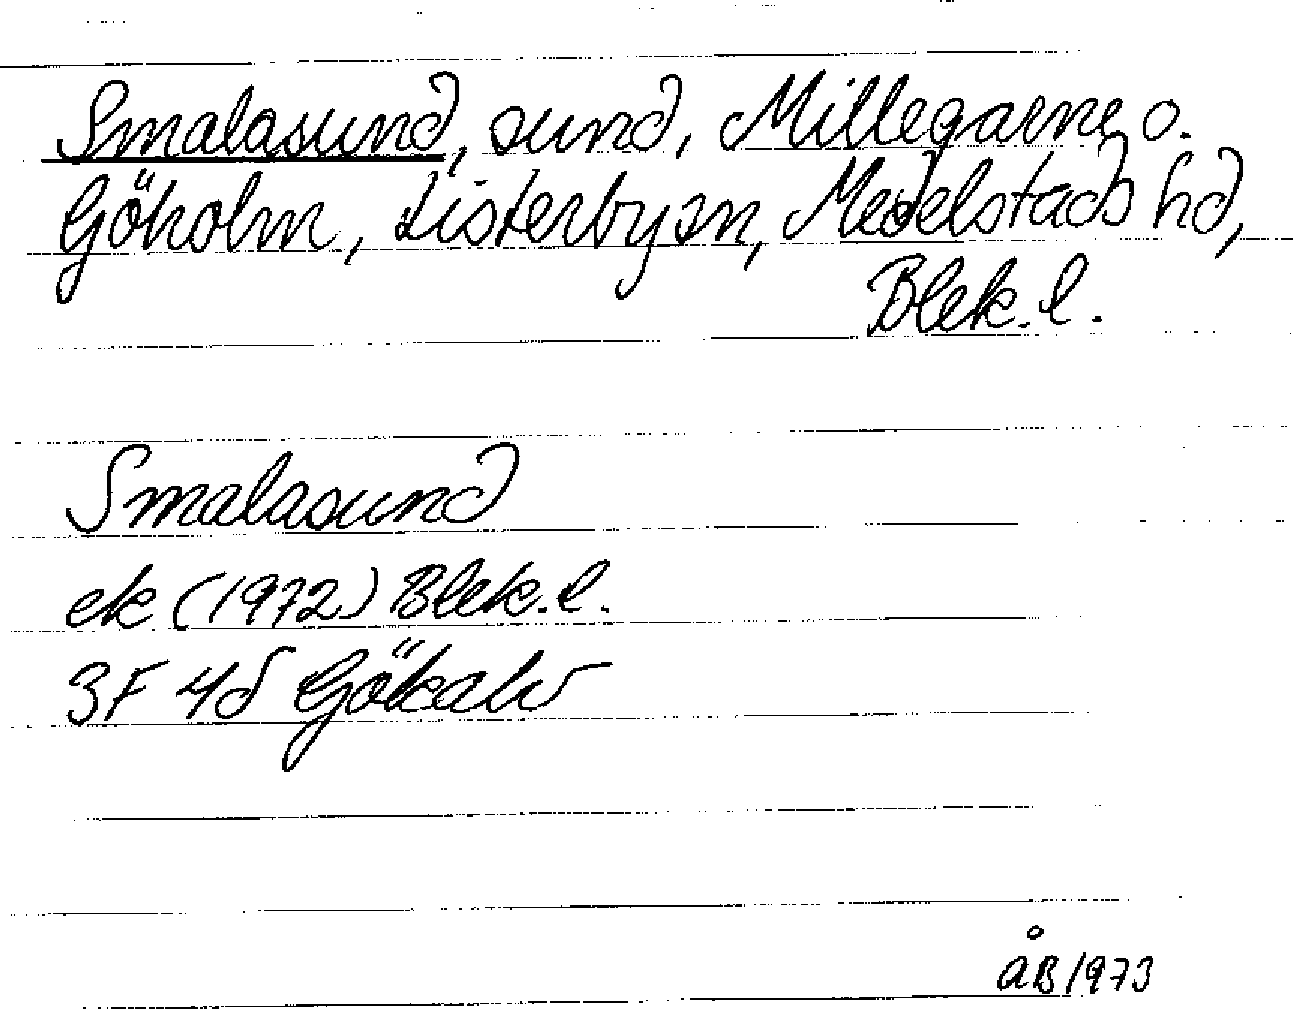 Smalasund, sund, Millegarne o.
Göholm, Listerbysn, Medelstads hd,
Blek. l.
Smalasund
ek (1972) Blek. l.
3F 4d Gökalv
ÅB 1973